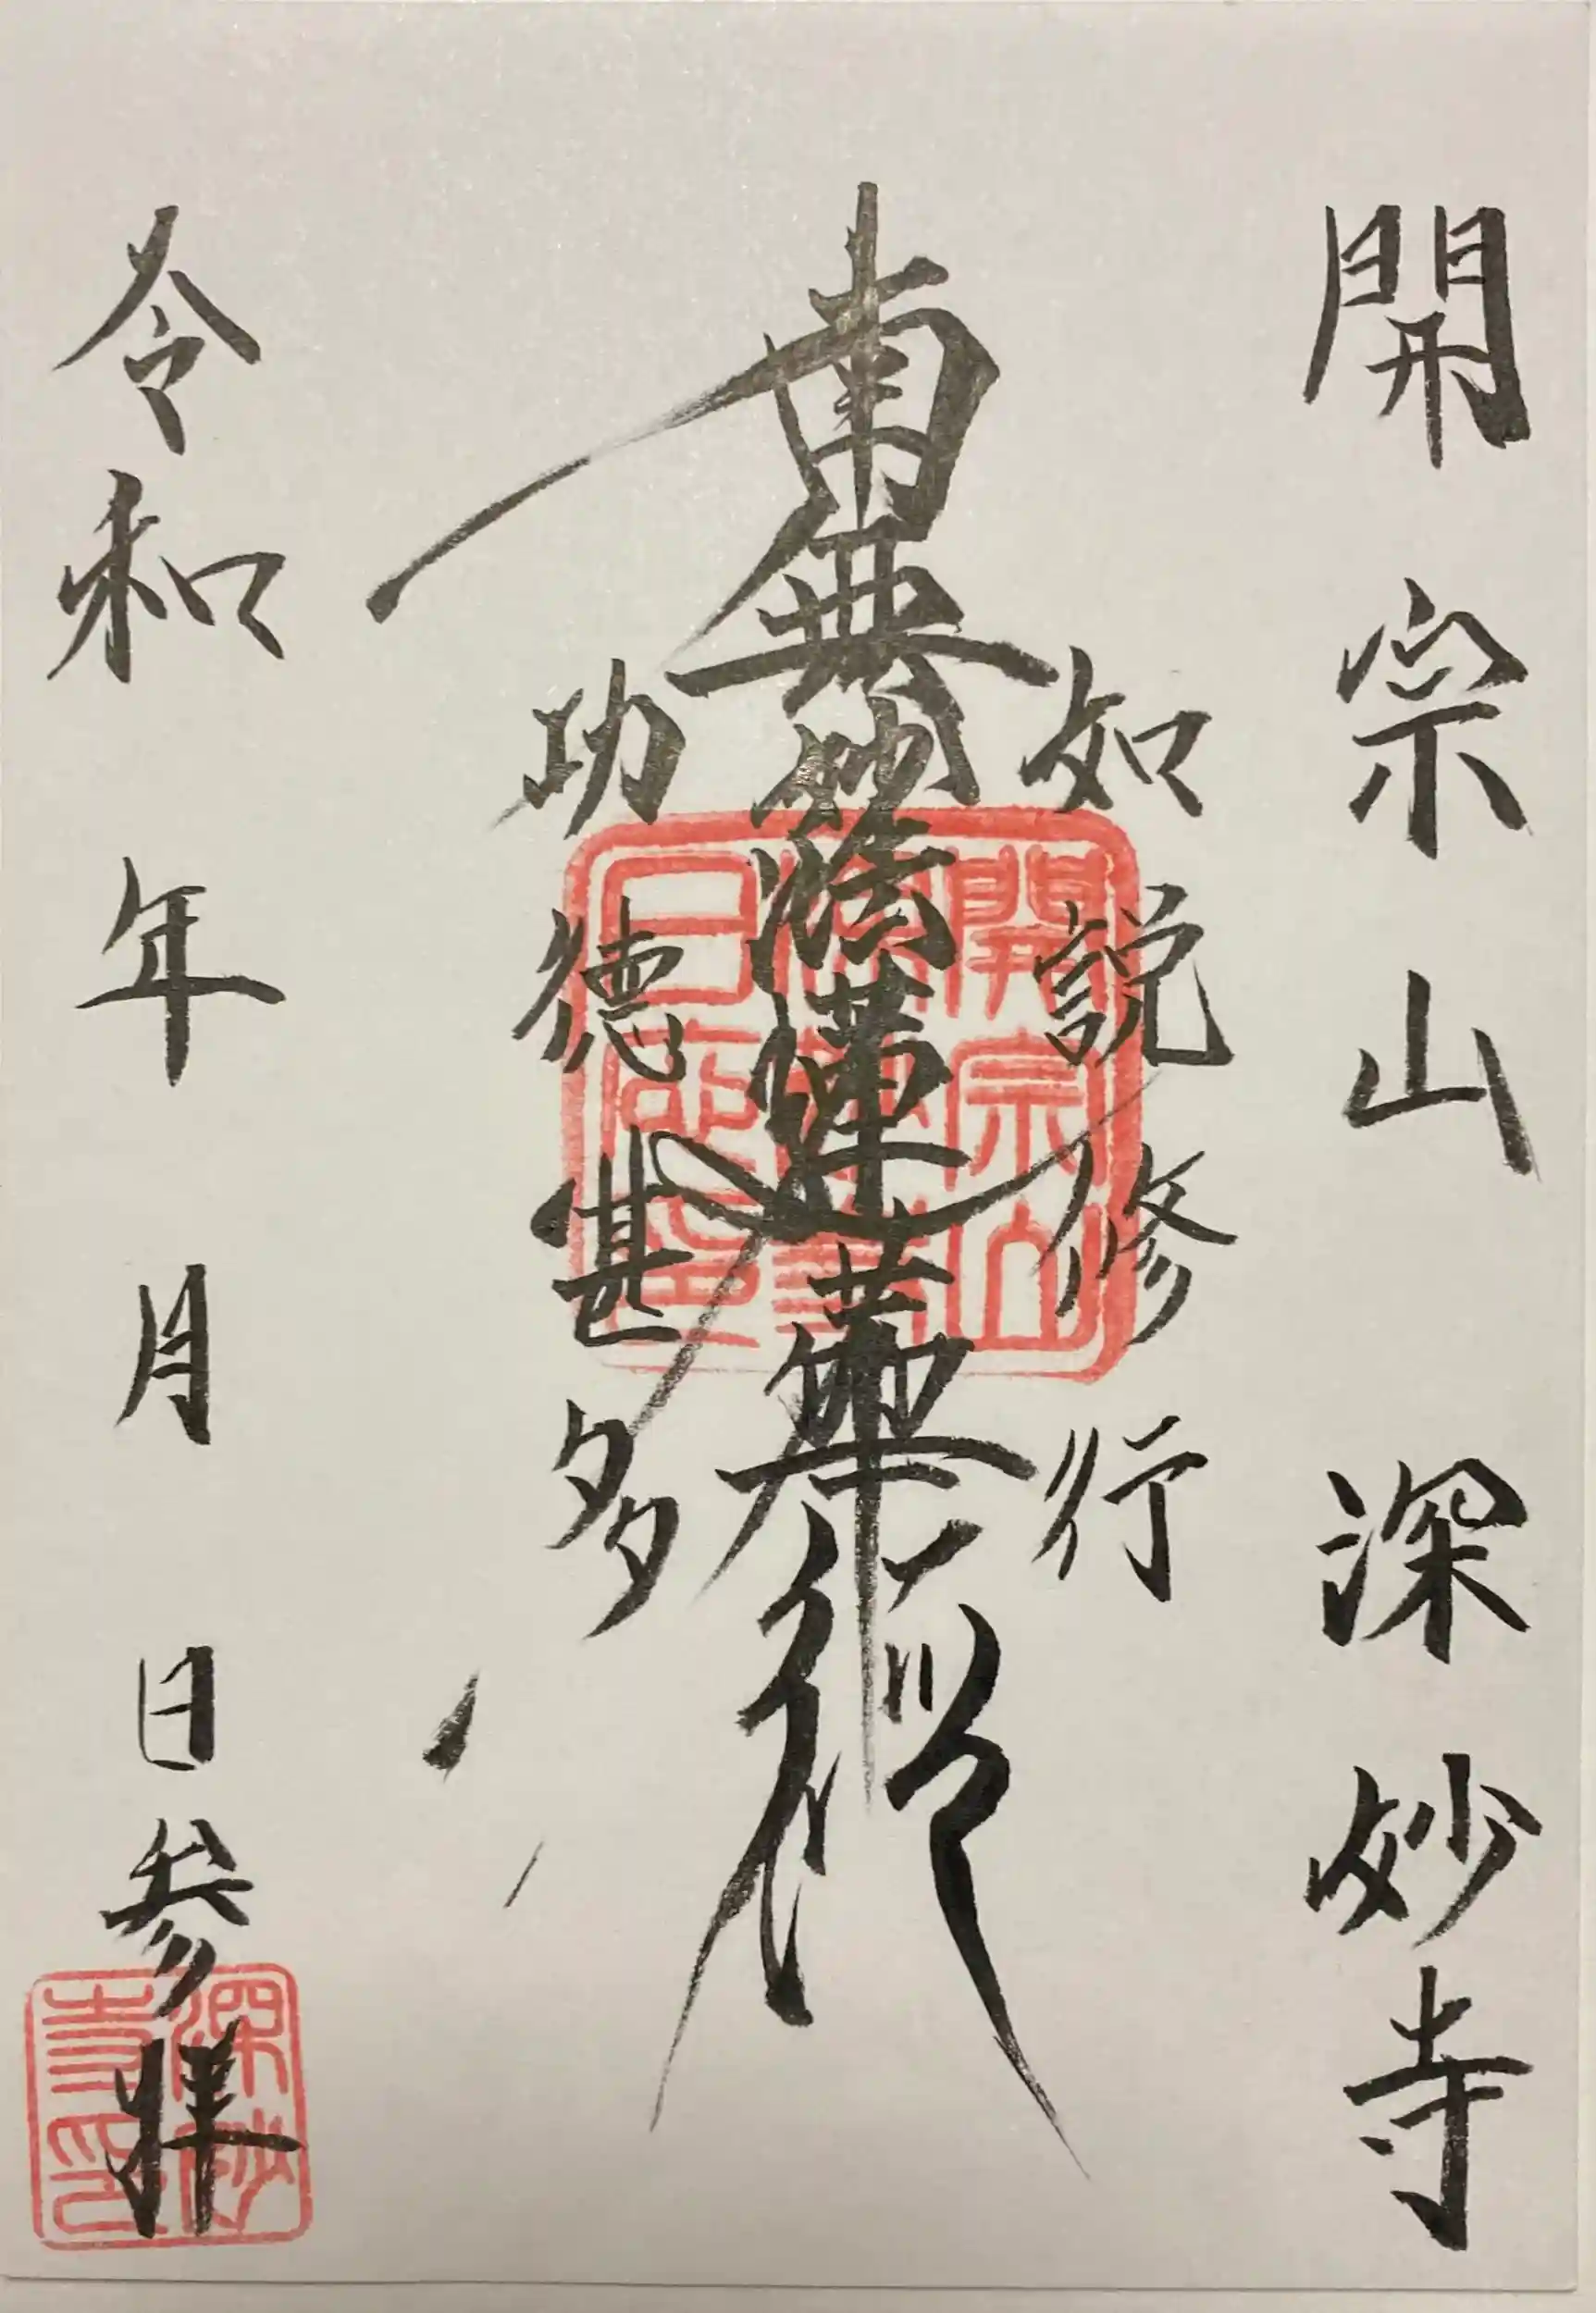 開宗山 深妙寺
如説修行
南無妙法蓮華経
功徳甚多
令和 年 月 日 参拝
開宗山
深妙
寺印